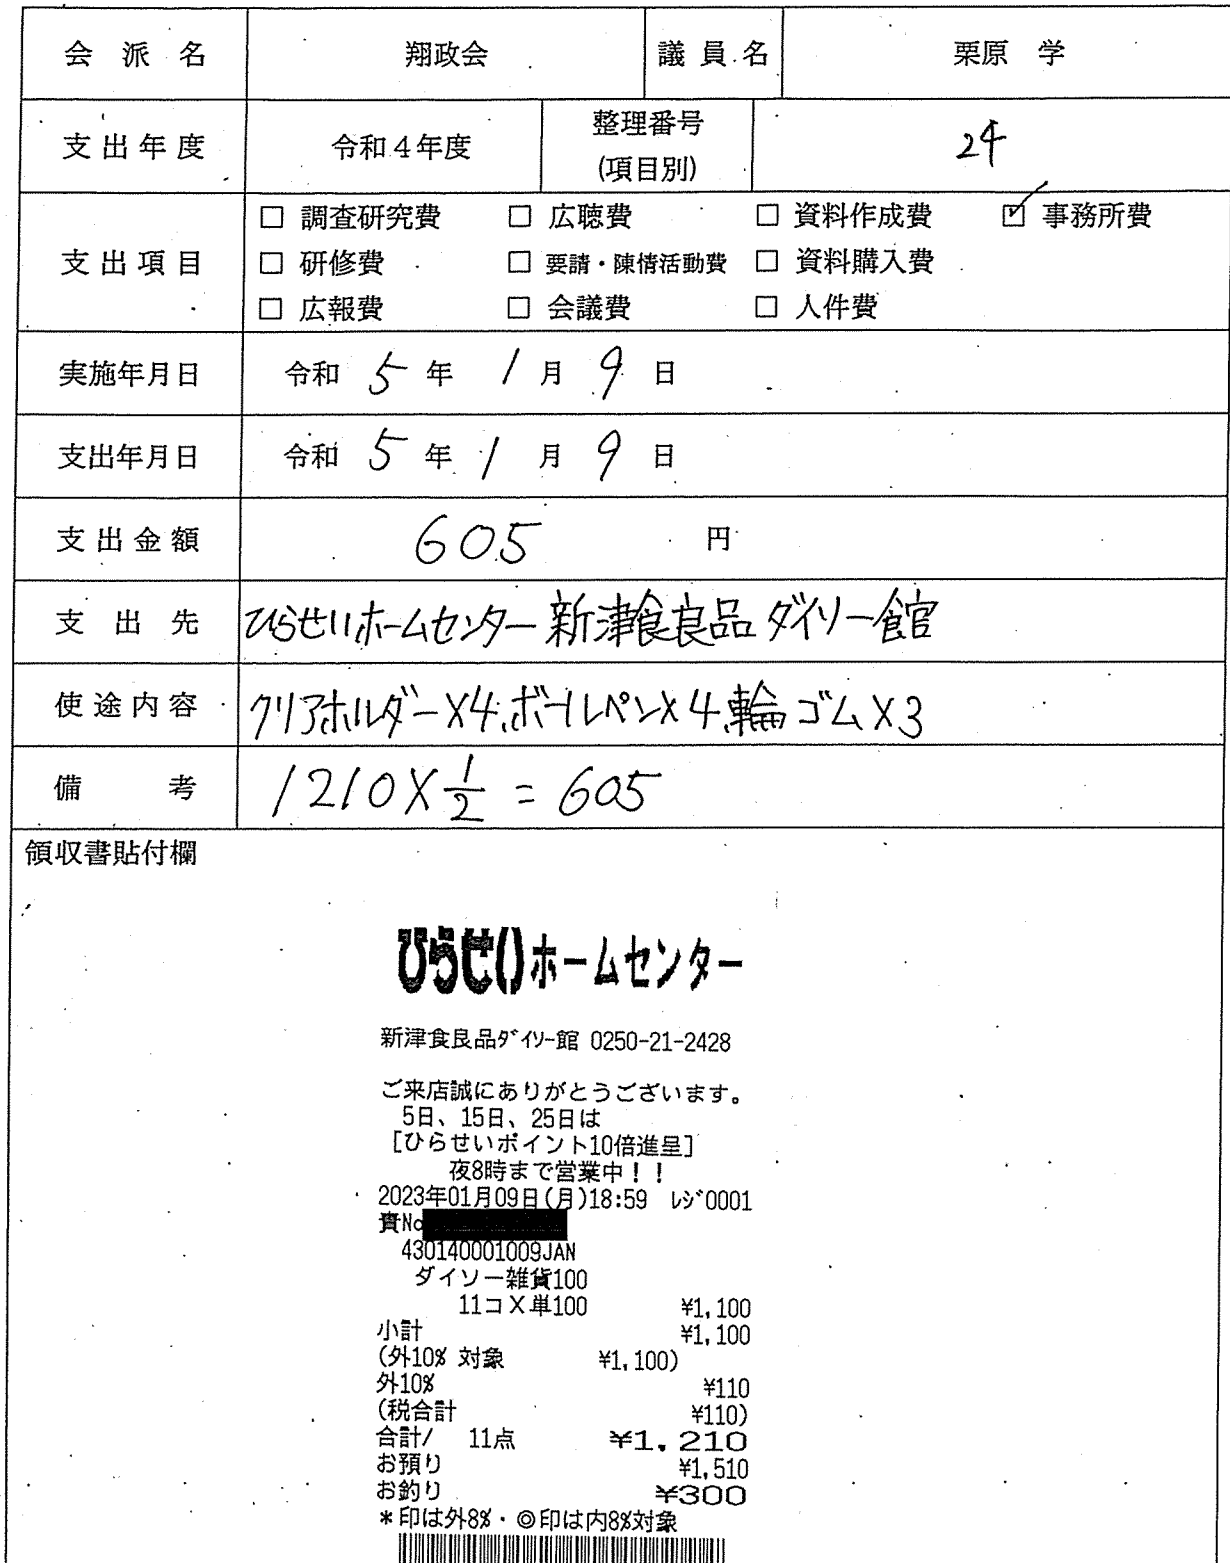 会派名 翔政会 議員名 栗原 学
支出年度 令和4年度 整理番号(項目別) 24
支出項目
□ 調査研究費 □ 広聴費 □ 資料作成費 ☑ 事務所費
□ 研修費 □ 要請・陳情活動費 □ 資料購入費
□ 広報費 □ 会議費 □ 人件費
実施年月日 令和 5 年 1 月 9 日
支出年月日 令和 5 年 1 月 9 日
支出金額 605 円
支出先 ひらせいホームセンター新津食良品ダイソー館
使途内容 クリアホルダー×4、ボールペン×4、輪ゴム×3
備考 1210×1/2=605
領収書貼付欄
ひらせいホームセンター
新津食良品ダイソー館 0250-21-2428
ご来店誠にありがとうございます。
5日、15日、25日は
[ひらせいポイント10倍進呈]
夜8時まで営業中！！
2023年01月09日(月)18:59 レジ0001
責No
430140001009JAN
ダイソー雑貨100
11コX単100 ¥1,100
小計 ¥1,100
(外10% 対象 ¥1,100)
外10% ¥110
(税合計 ¥110)
合計/ 11点 ¥1,210
お預り ¥1,510
お釣り ¥300
*印は外8%・◎印は内8%対象